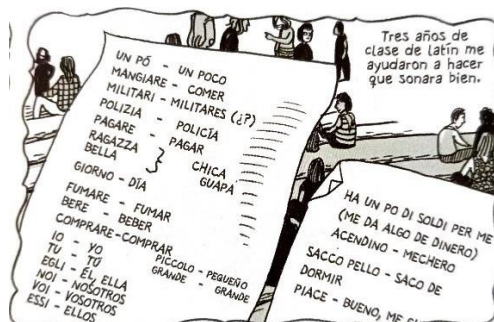 Tres años de
clase de latín me
ayudaron a hacer
que sonara bien.
UN PÓ - UN POCO
MANGIARE - COMER
MILITARI - MILITARES (¿?)
POLIZIA - POLICÍA
PAGARE - PAGAR
RAGAZZA
BELLA
CHICA
GUAPA
GIORNO - DÍA
FUMARE - FUMAR
BERE - BEBER
COMPRARE - COMPRAR
IO - YO
TU - TÚ
EGLI - ÉL, ELLA
NOI - NOSOTROS
VOI - VOSOTROS
ESSI - ELLOS
PICCOLO - PEQUEÑO
GRANDE - GRANDE
HA UN PO DI SOLDI PER ME
(ME DA ALGO DE DINERO)
ACENDINO - MECHERO
SACCO PELLO - SACO DE
DORMIR
PIACE - BUENO, ME